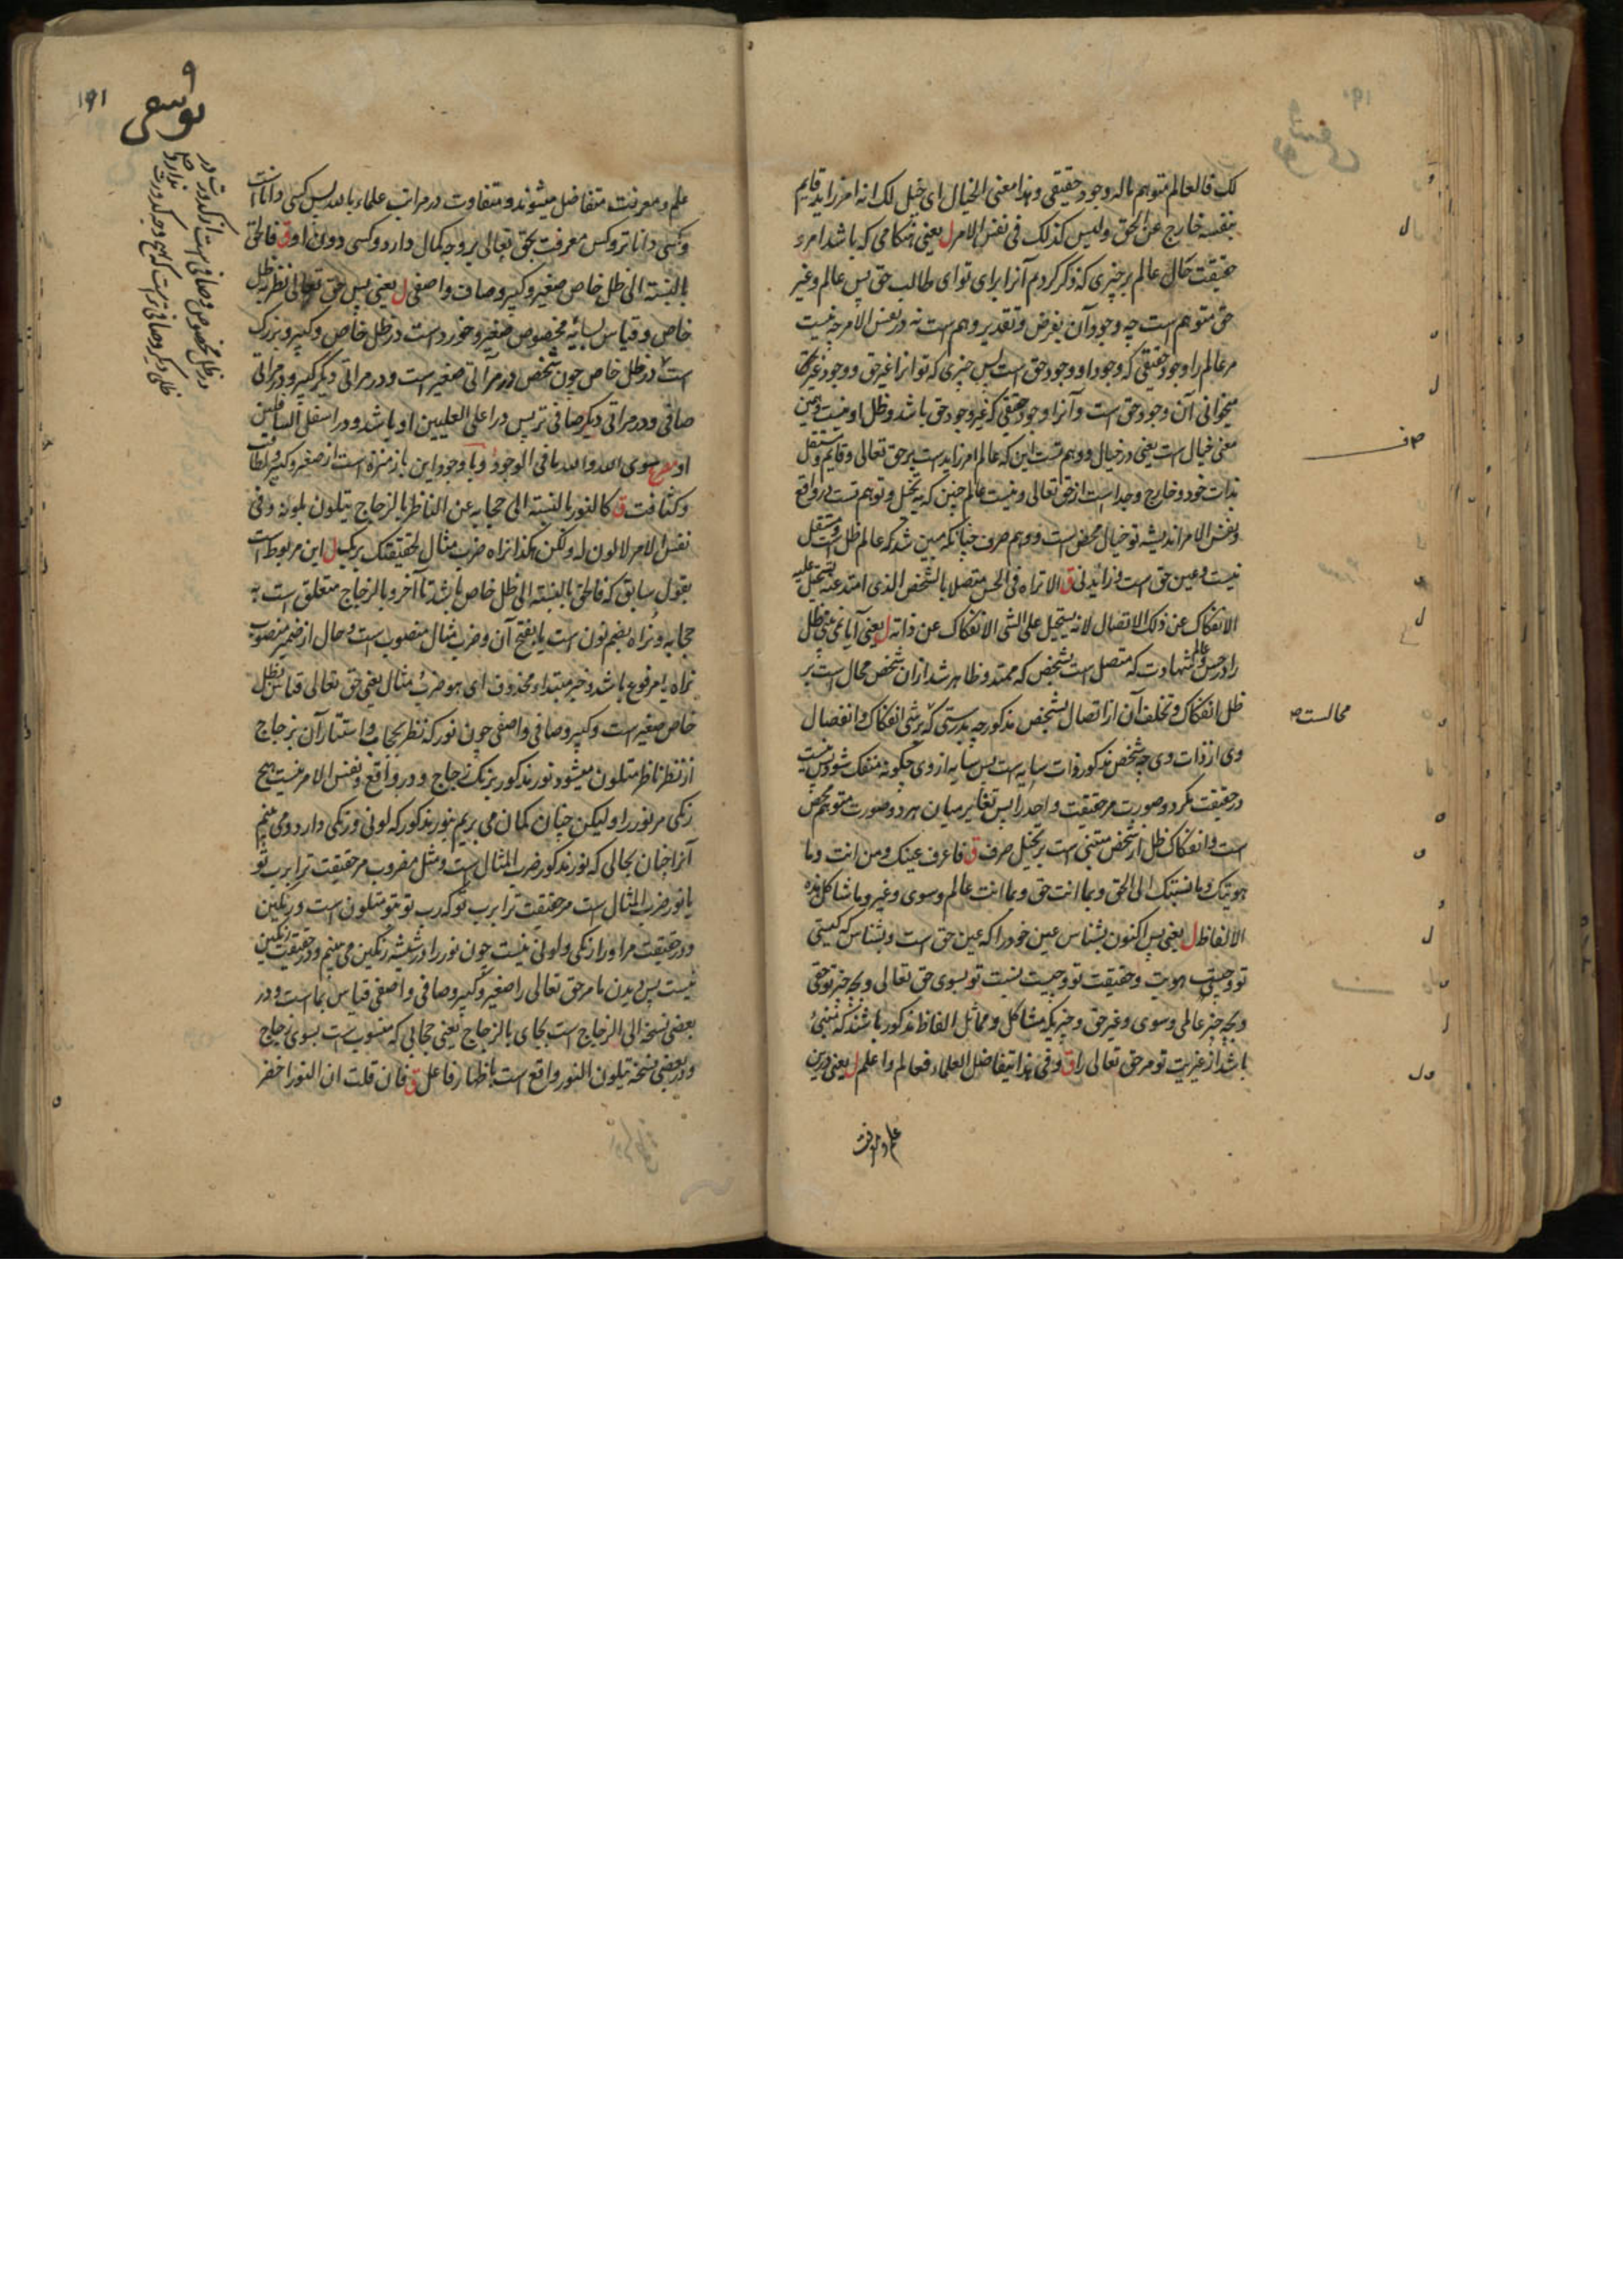 لک فالعالم متوهم ماله وجود حقیقی و هذا معنی الخیال ای خیل لک انه امر زاید قایم
بنفسه خارج عن الحق و لیس کذلک فی نفس الامر ل یعنی هنکامی که باشد امر و
حقیقت حال عالم بر چیزی که ذکر کردم آنرا برای تو ای طالب حق پس عالم و غیر
حق متوهم است چه وجود آن بفرض و تقدیر وهم است نه در نفس الامر چه نیست
مر عالم را وجود حقیقی که وجود او وجود حق است پس چیزی که تو آنرا غیر حق و وجود غیر حق
میخوانی آن وجود حق است و آنرا وجود حقیقی که غیر وجود حق باشد و ظل او نیست و همین
معنی خیال است یعنی در خیال و وهم تست این که عالم امر زاید است بر حق تعالی و قایم و مستقل
بذات خود و خارج و جدا است از حق تعالی و نیست عالم چنین که به تخیل و توهم تست در واقع
و نفس الامر اندیشه تو خیال محض است و وهم صرف چنانکه مبین شد که عالم ظل حق است و مستقل
نیست و عین حق است نه زاید نی ق الا تراه فی الحس متصلا بالشخص الذی امتد عنه یستحیل علیه
الانفکاک عن ذلک الاتصال لانه یستحیل علی الشی الانفکاک عن ذاته ل یعنی آیا نمی بینی ظل
را در حس و عالم شهادت که متصل است بشخص که ممتد و ظاهر شد از ان شخص محال است بر
ظل انفکاک و تخلف آن از اتصال بشخص مذکور چه بدرستی که بر شی انفکاک و انفصال
محالست صح
وی از ذات وی چه شخص مذکور ذات سایه است پس سایه از وی چکونه منفک شود پس نیست
در حقیقت مکر دو صورت مر حقیقت واحد را پس تغایر میان هر دو صورت متوهم محض
است و انفکاک ظل از شخص منتفی است بر تخیل صرف ق فاعرف عینک و من انت و ما
هویتک و ما نسبتک الی الحق و بما انت حق و بما انت عالم و سوی و غیر و ما شاکل هذه
الالفاظ ل یعنی پس اکنون بشناس عین خود را که عین حق است و بشناس که کیستی
تو و چیست هویت و حقیقت تو و چیست نسبت تو بسوی حق تعالی و بچه چیز تو حقی
و بچه چیز عالمی و سوی و غیر حق و چیزیکه مشاکل و مماثل الفاظ مذکور باشند که مبنی
باشد از غیریت تو مر حق تعالی را ق و فی هذا یتفاضل العلماء فعالم و اعلم ل یعنی درین
علم و معرفت
١٩١
علم و معرفت متفاضل میشوند و متفاوت در مراتب علماء بالله پس کسی دانا است
و کسی داناتر و کس معرفت بحق تعالی بر وجه کمال دارد و کسی دون او ق فالحق
بالنسبة الی ظل خاص صغیر و کبیر و صاف و اصفی ل یعنی پس حق تعالی نظر به ظل
خاص و قیاس بسایه مخصوص صغیر و خورد است در ظل خاص و کبیر و بزرک
است در ظل خاص چون شخص در مرآتی صغیر است و در مراتی دیکر کبیر و در مراتی
صافی و در مراتی دیکر صافی تر پس در اعلی العلیین او باشد و در اسفل السافلین
او مصرع سوی الله و الله ما فی الوجود و با وجود این باز منزه است از صغیر و کبیر و لطافت
و کثافت ق کالنور بالنسبة الی حجابه عن الناظر بالزجاج یتلون بلونه و فی
نفس الامر لا لون له و لکن هکذا تراه ضرب مثال لحقیقتک بربک ل این مربوط است
بقول سابق که فالحق بالنسبة الی ظل خاص باشد تا آخر و بالزجاج متعلق است به
حجابه و تراه بضم نون است یا بفتح آن و ضرب مثال منصوب است و حال از ضمیر منصوب
تراه یا مرفوع باشد و خبر مبتداء محذوف ای هو ضرب مثال یعنی حق تعالی قیاس بظل
خاص صغیر است و کبیر و صافی و اصفی چون نور که نظر بحجاب و استتار آن بزجاج
از نظر ناظر متلون میشود نور مذکور برنک زجاج و در واقع و نفس الامر نیست هیچ
رنکی مر نور را و لیکن چنان کمان می بریم بنور مذکور که لونی و رنکی دارد و می بینم
آنرا چنان بحالی که نور مذکور ضرب المثال است و مثل مضروب مر حقیقت ترا برب تو
یا نور ضرب المثال است مر حقیقت ترا برب تو که رب تو بتو متلون است و رنکین
و در حقیقت مر او را رنکی و لونی نیست چون نور را در شیشه رنکین می بینیم و در حقیقت رنکین
نیست پس دیدن ما مر حق تعالی را صغیر و کبیر و صافی و اصفی قیاس بما است و در
بعضی نسخه الی الزجاج است بجای بالزجاج یعنی حجابی که منسوب است بسوی زجاج
و در بعضی نسخه یتلون النور واقع است باظهار فاعل ق فان قلت ان النور اخضر